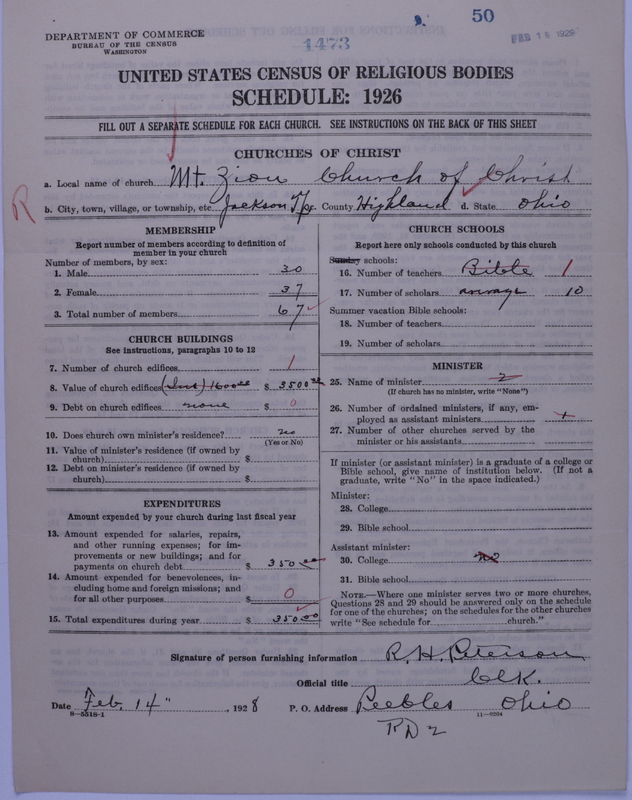 50
DEPARTMENT OF COMMERCE
BUREAU OF THE CENSUS
WASHINGTON
1473
FEB 16 1928
UNITED STATES CENSUS OF RELIGIOUS BODIES
SCHEDULE: 1926
FILL OUT A SEPARATE SCHEDULE FOR EACH CHURCH. SEE INSTRUCTIONS ON THE BACK OF THIS SHEET
CHURCHES OF CHRIST
a. Local name of church Mt. Zion Church of Christ
R
b. City, town, village, or township, etc. Jackson Tp. County Highland d. State Ohio
MEMBERSHIP
Report number of members according to definition of
member in your church
Number of members, by sex:
1. Male 30
2. Female 37
3. Total number of members 67
CHURCH BUILDINGS
See instructions, paragraphs 10 to 12
7. Number of church edifices 1
8. Value of church edifices 1600.00 $ 3500.00
9. Debt on church edifices none $ 0
10. Does church own minister's residence? no
(Yes or No)
11. Value of minister's residence (if owned by
church) $
12. Debt on minister's residence (if owned by
church) $
EXPENDITURES
Amount expended by your church during last fiscal year
13. Amount expended for salaries, repairs,
and other running expenses; for im-
provements or new buildings; and for
payments on church debt $ 350.00
14. Amount expended for benevolences, in-
cluding home and foreign missions; and
for all other purposes $ 0
15. Total expenditures during year $ 350.00
CHURCH SCHOOLS
Report here only schools conducted by this church
Sunday schools:
16. Number of teachers Bible 1
17. Number of scholars average 10
Summer vacation Bible schools:
18. Number of teachers
19. Number of scholars
MINISTER
25. Name of minister 2
(If church has no minister, write "None")
26. Number of ordained ministers, if any, em-
ployed as assistant ministers
27. Number of other churches served by the
minister or his assistants
If minister (or assistant minister) is a graduate of a college or
Bible school, give name of institution below. (If not a
graduate, write "No" in the space indicated.)
Minister:
28. College
29. Bible school
Assistant minister:
30. College
31. Bible school
NOTE.—Where one minister serves two or more churches,
Questions 28 and 29 should be answered only on the schedule
for one of the churches; on the schedules for the other churches
write "See schedule for church."
Signature of person furnishing information R. H. Peterson
Official title Clk.
Date Feb. 14", 1928 P. O. Address Peebles Ohio
8—5518-1
11—9204
RD 2